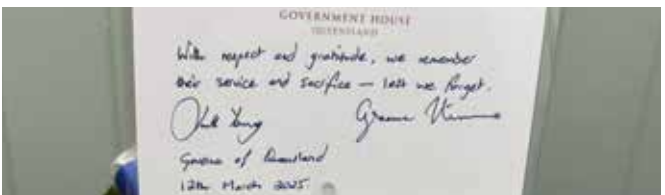 GOVERNMENT HOUSE
QUEENSLAND
With respect and gratitude, we remember
their service and sacrifice — lest we forget.
Graeme
Governor of Queensland
12th March 2025.